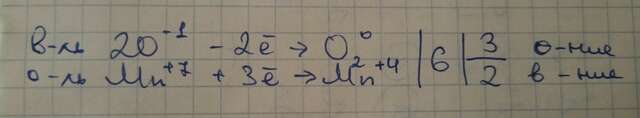 в-ль 2O⁻¹ - 2ē → O₂⁰ | 6 | 3 о-ние
о-ль Mn⁺⁷ + 3ē → Mn⁺⁴ | 2 в-ние